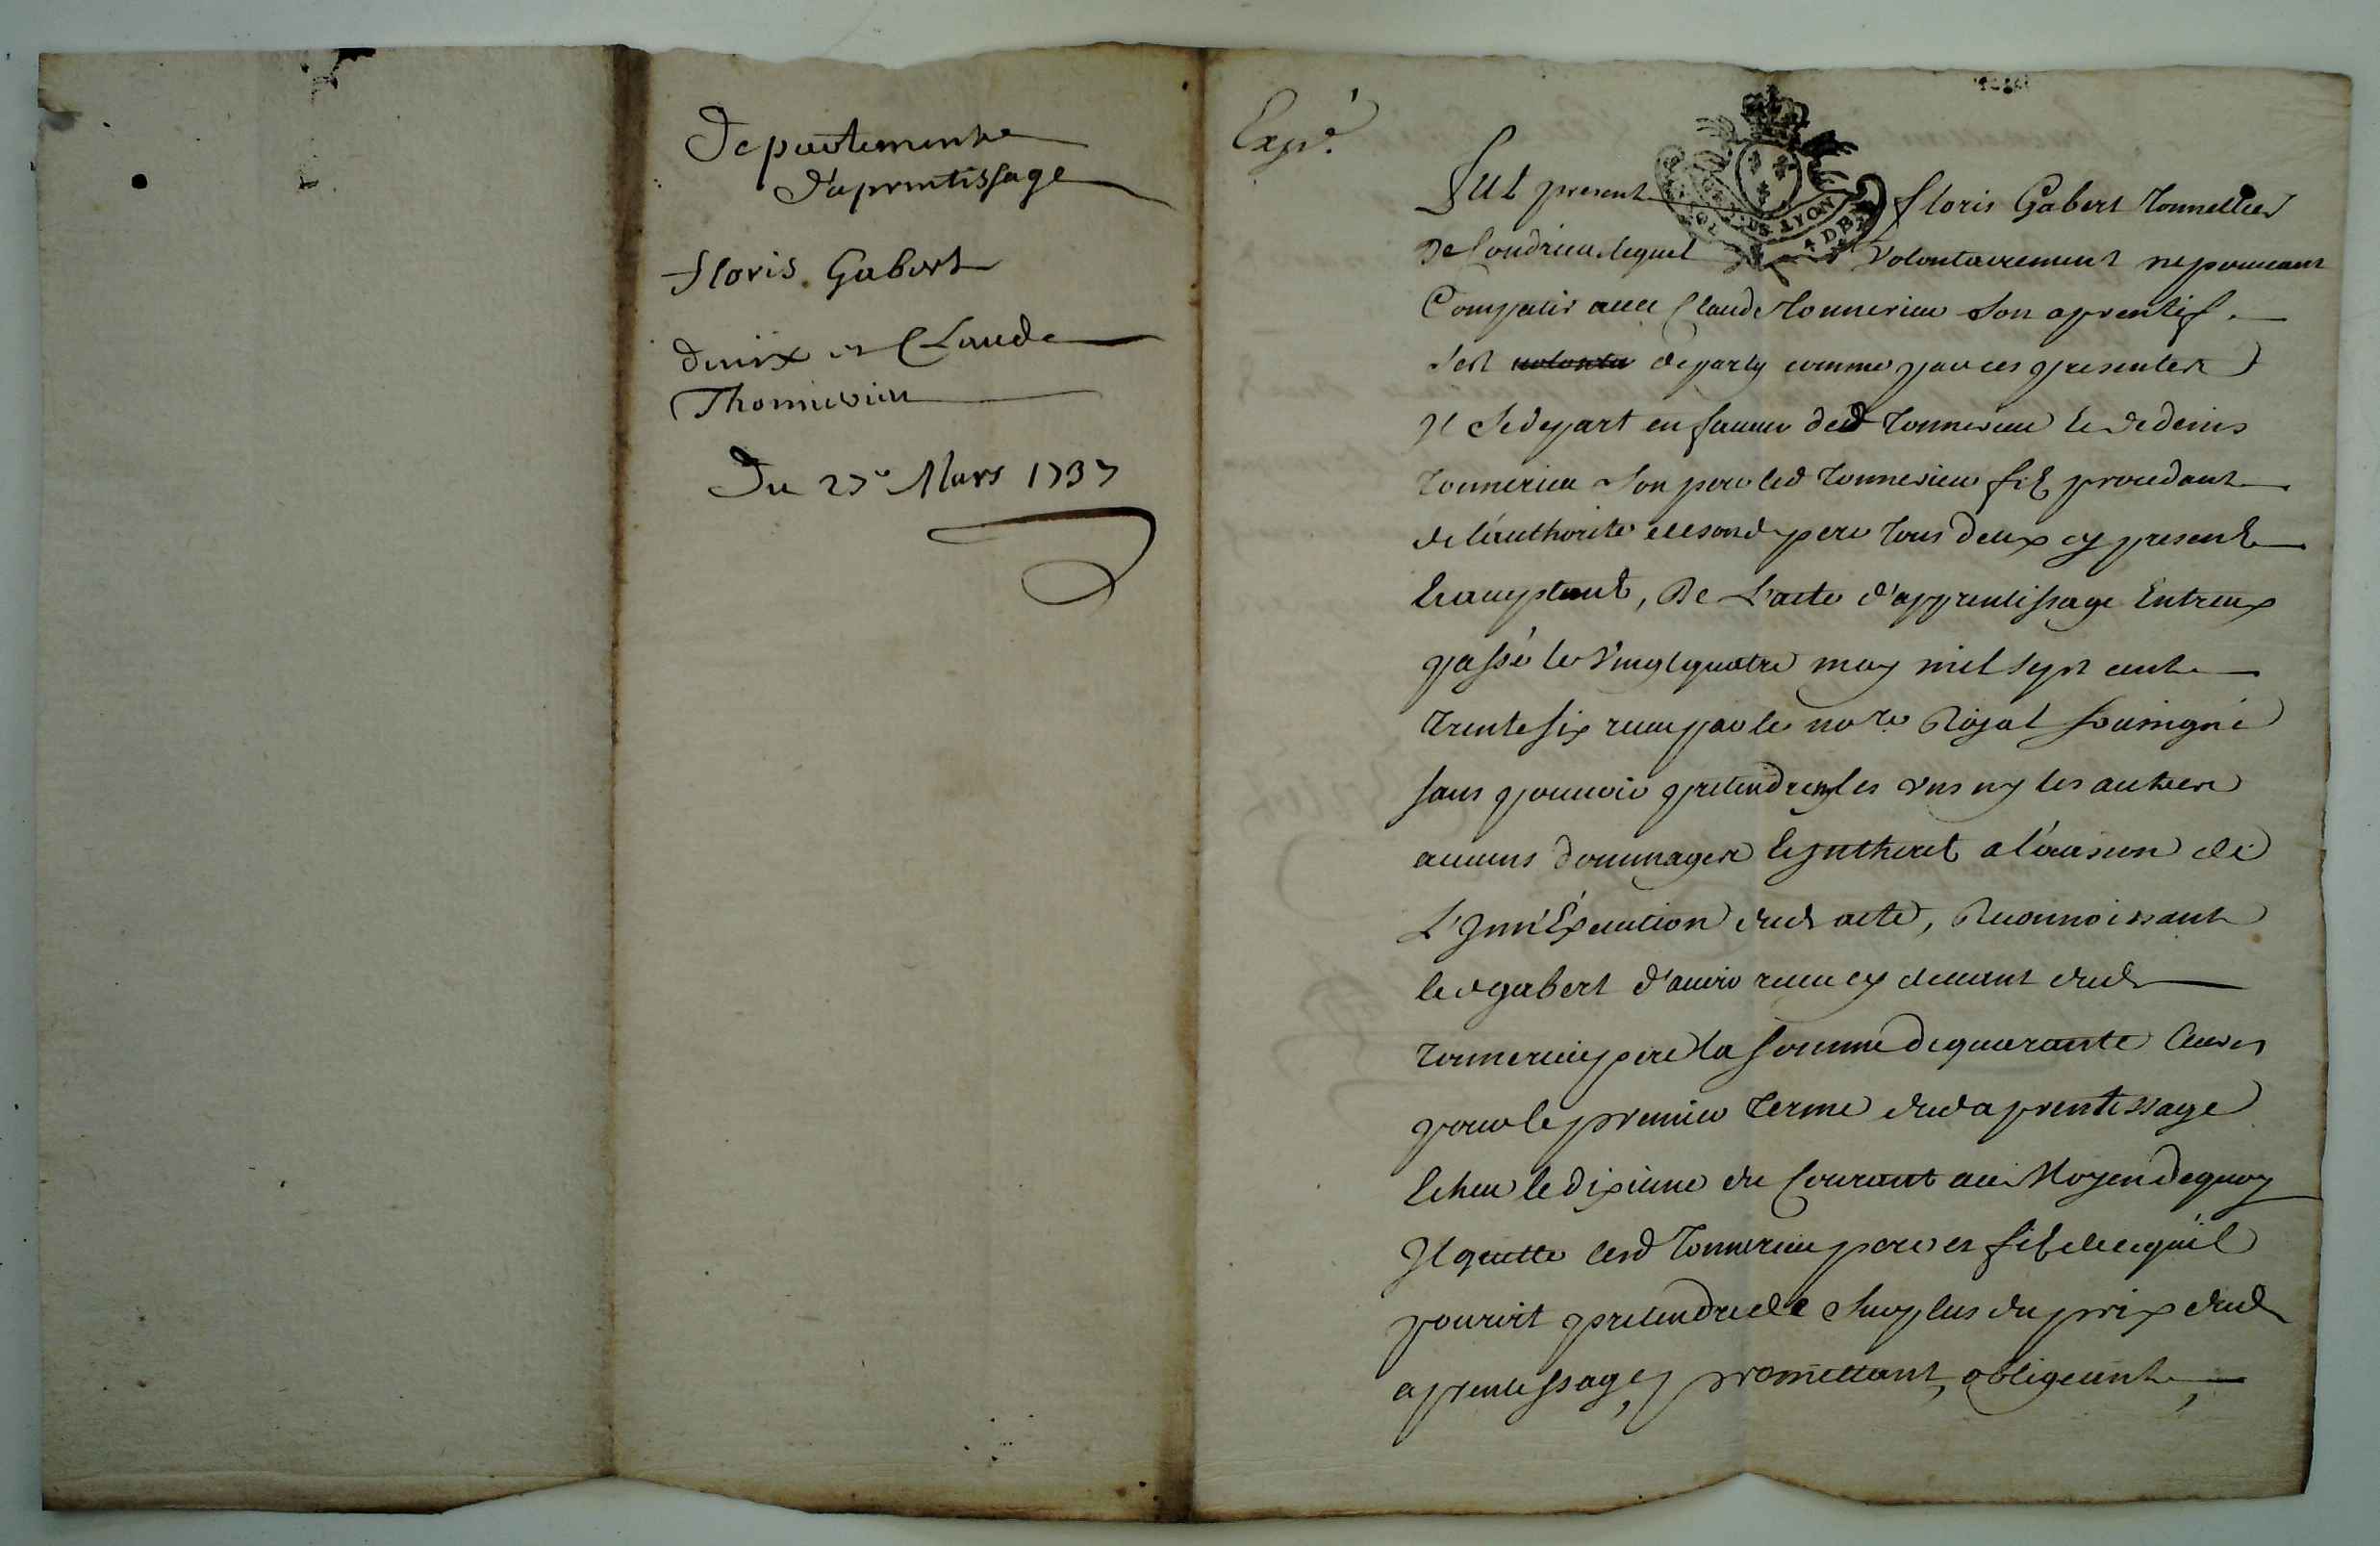 Departement
d'aprentissage
floris Gabert
denix et Claude
Thonnerieu
Du 27e Mars 1737
Expé.
Fut present floris Gabert Tonnellier
De Condrieu lequel volontairement ne pouvant
Compatir avec Claude Tonnerieu son aprentif
s'est volonta departy comme par ces presentes
Il se depart en faveur dud Tonnerieu & de denis
Tonnerieu son pere led Tonnerieu fils procedant
de l'authorité de sond pere tous deux cy present
& acceptant, De L'acte d'apprentissage Entreux
passé le vingt quatre may mil sept cent
trente six receu par le nore Royal soussigné
sans pouvoir pretendre les uns ny les autres
aucuns dommages & Intheret a l'occasion de
L'Innéxecution dud acte, Reconnoissant
led gabert d'avoir receu cy devant dud
Tonnerieu pere la somme de quarante livres
pour le premier terme dud aprentissage
Echeu le dixieme du Courant au Moyen de quoy
Il quitte lesd Tonnerieu pere et fils de ce qu'il
pouroit pretendre de surplus du prix dud
aprentissage, promettant, obligeant,